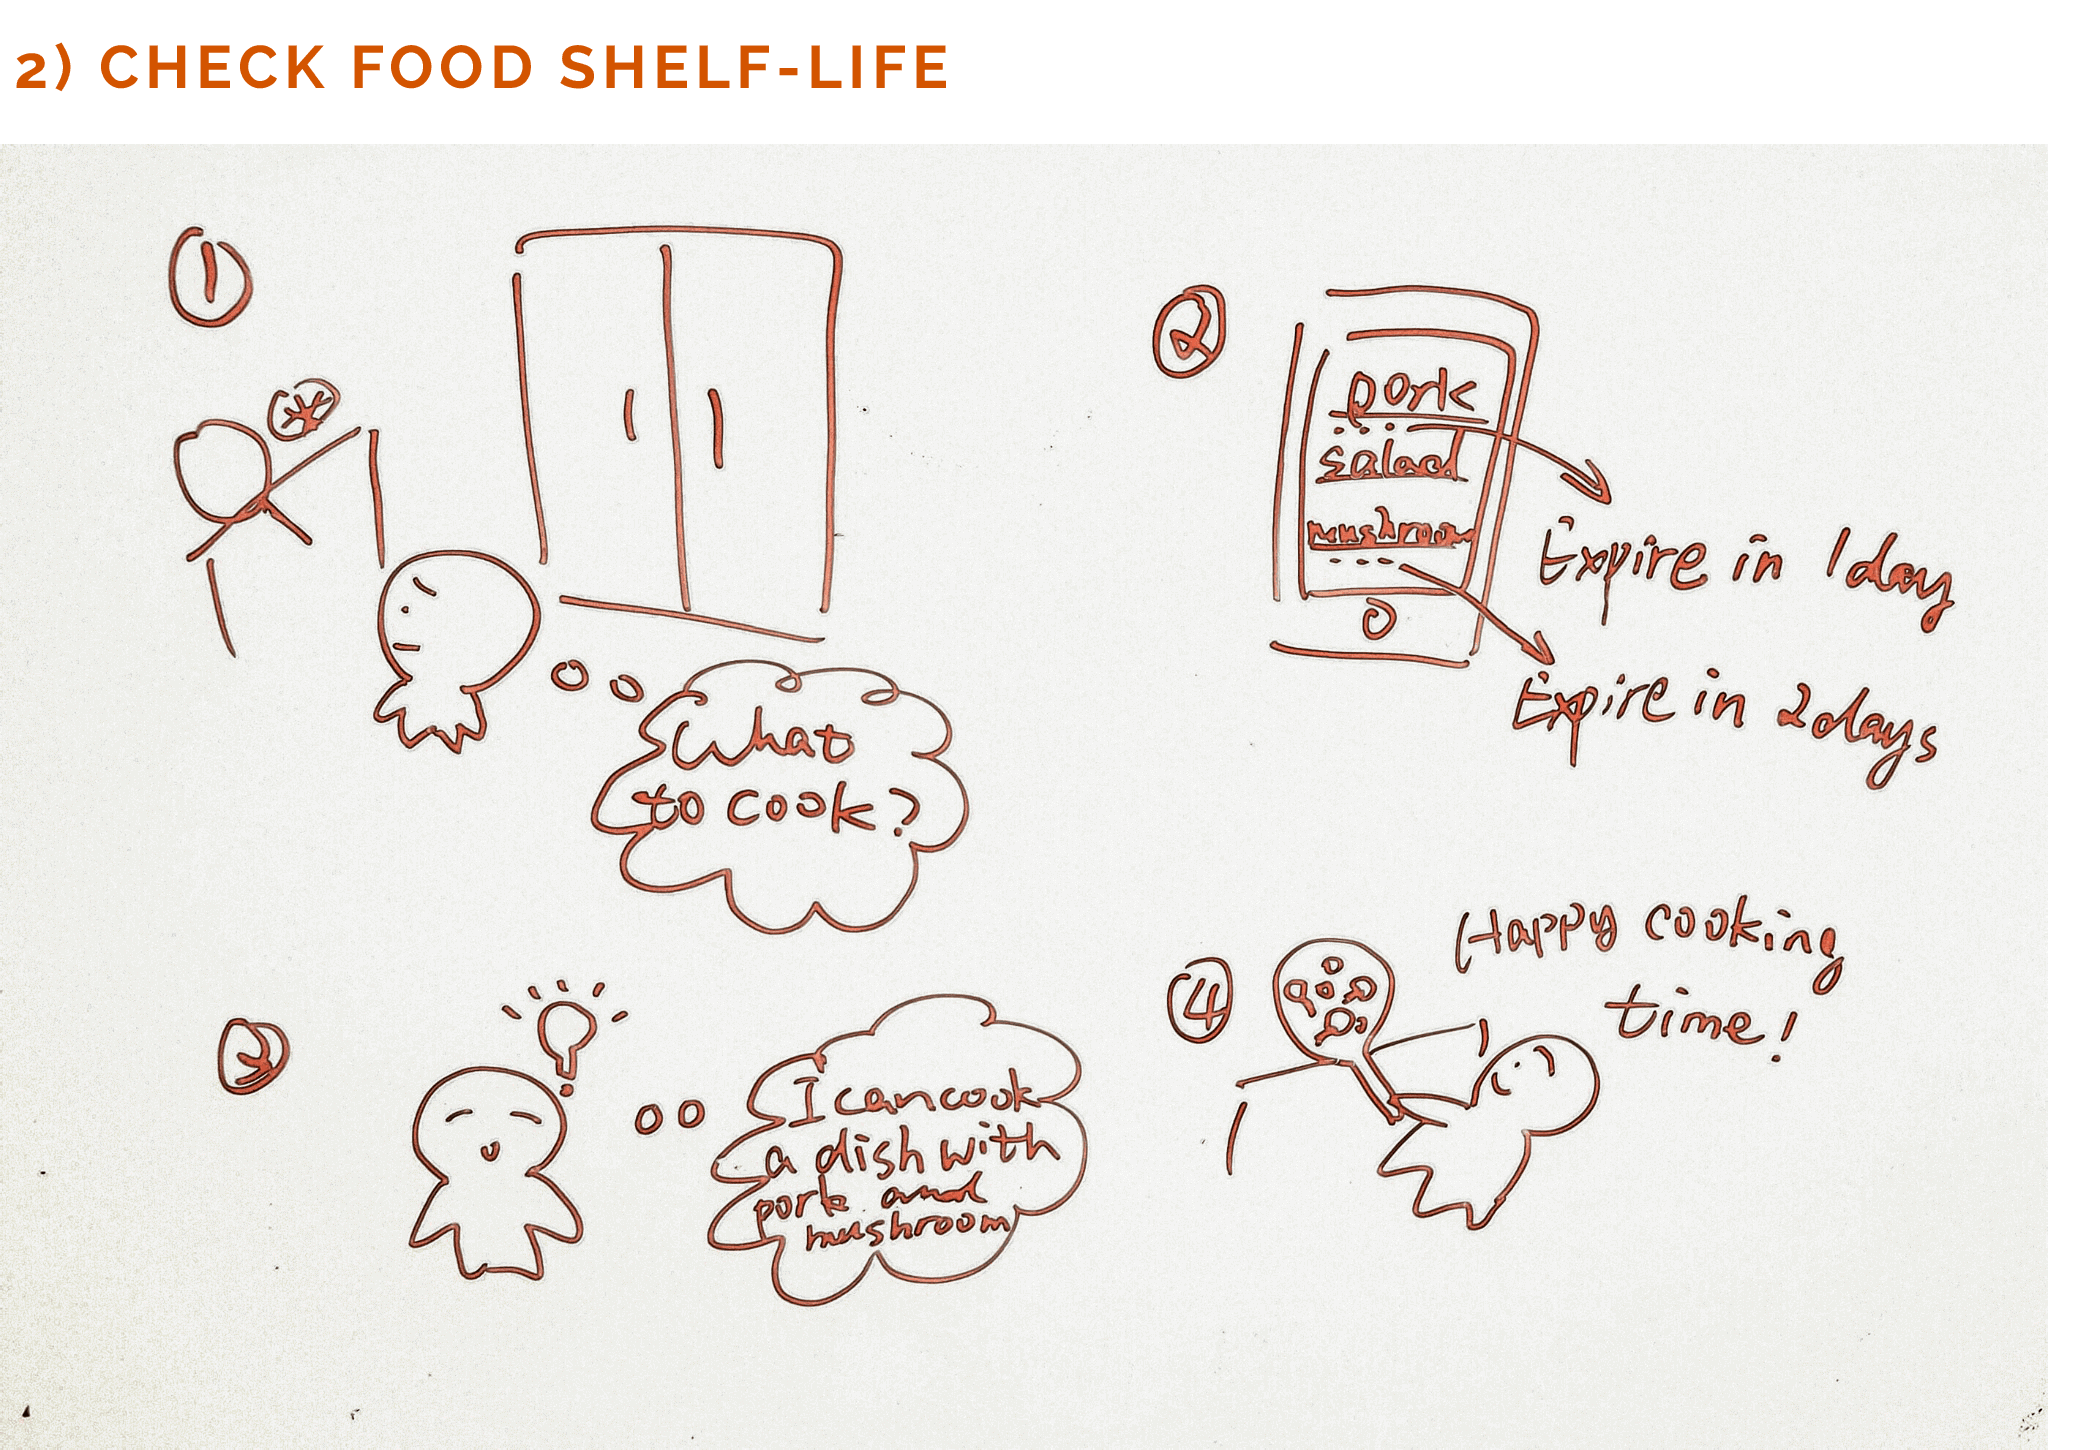 2) CHECK FOOD SHELF-LIFE
1
What
to cook?
2
pork
salad
mushroom
Expire in 1day
Expire in 2days
3
I can cook
a dish with
pork and
mushroom
4
Happy cooking
time!